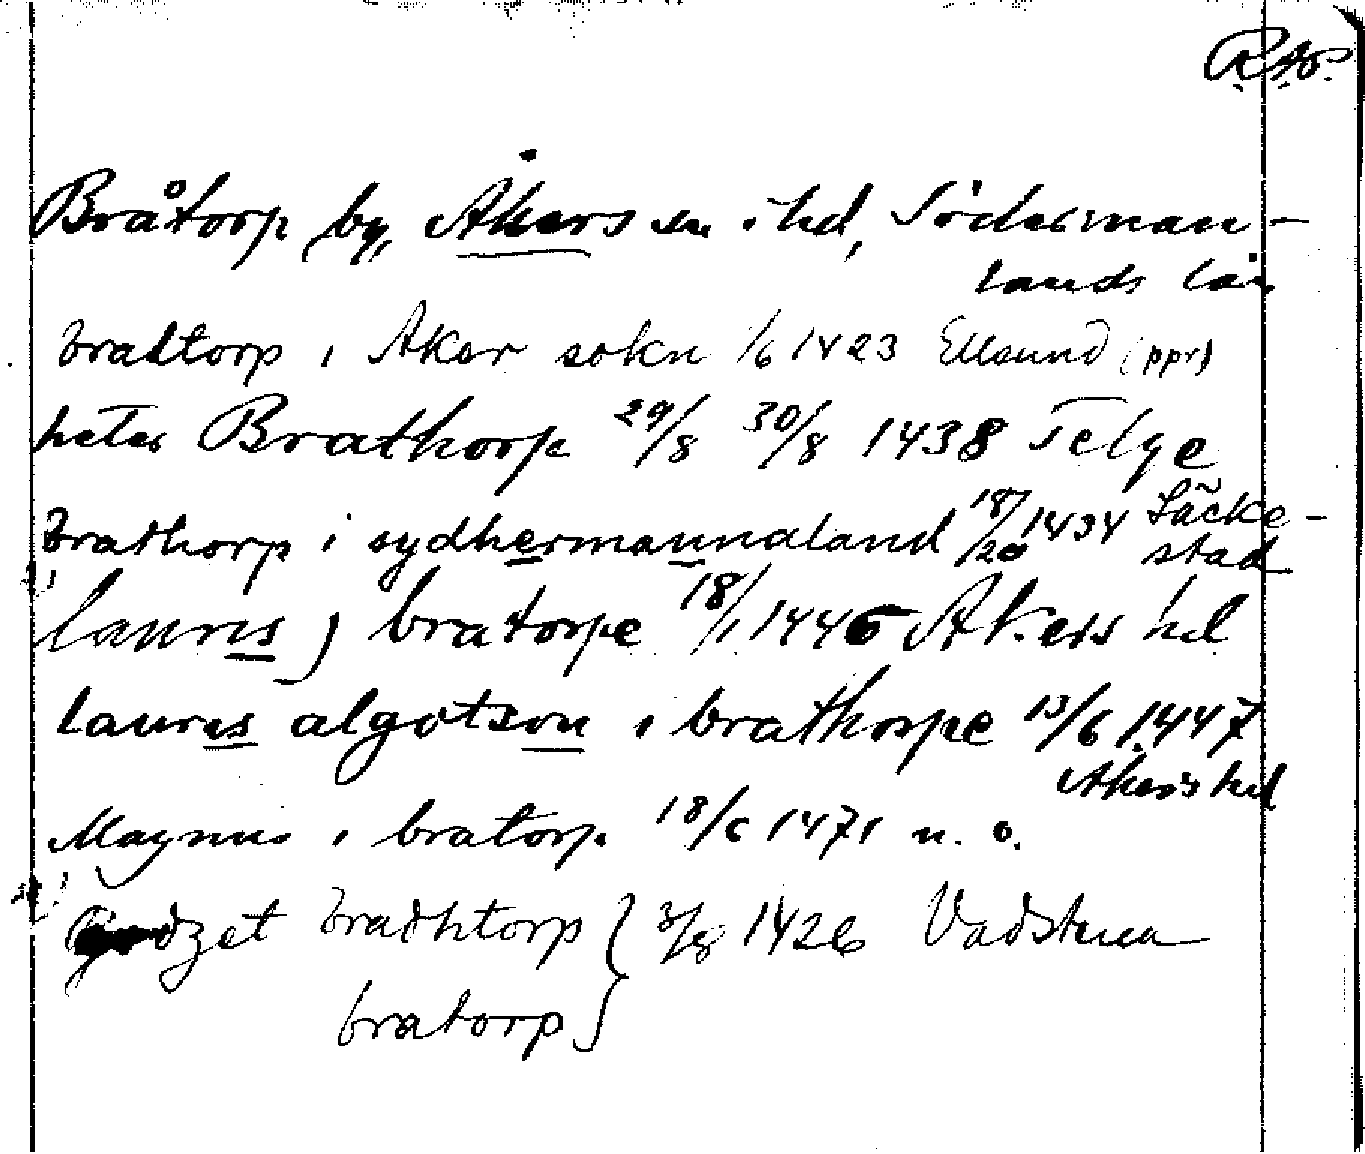 Råo.
Bråtorp by, Åkers sn i hd, Söderman-
lands län
bradtorp i Aker sokn 1/6 1423 Ellsund (ppr)
heter Brathorp 29/8 30/8 1438 Telge
brathorp i sydhermannaland 18/20 1434 Säcke-
stad
lauris) bratorpe 18/1 1446 Åkers hd
lauris algotson i brathorpe 13/6 1447
Åkers hd
Magnus i bratorp 18/6 1471 u. o.
godzet bradhtorp } 3/8 1426 Vadstena
bratorp